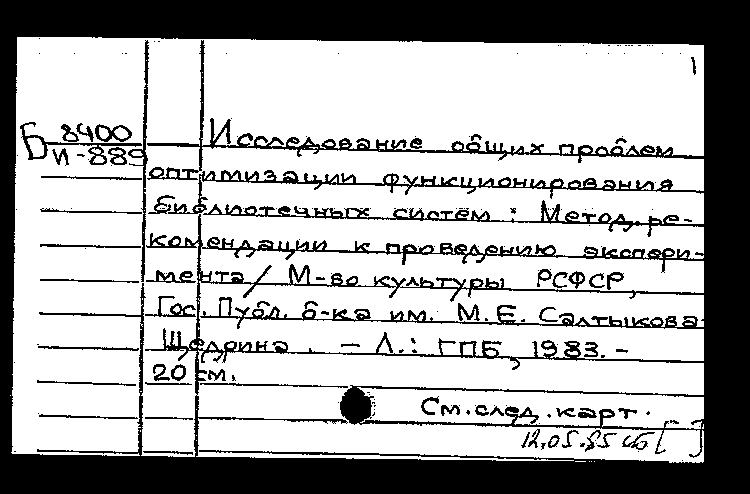 1
Б 8400
И-889
Исследование общих проблем
оптимизации функционирования
библиотечных систем : Метод. ре-
комендации к проведению экспери-
мента / М-во культуры РСФСР,
Гос. Публ. б-ка им. М.Е. Салтыкова
Щедрина. - Л.: ГПБ, 1983. -
20 см.
См. след. карт.
12.05.85 [ ]